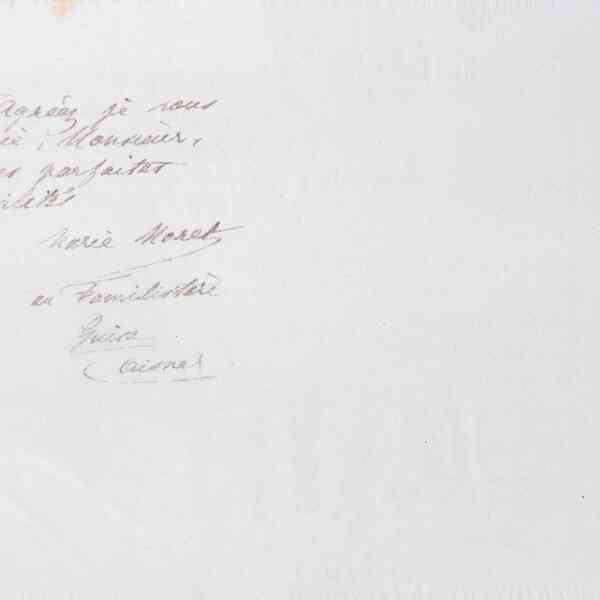 Agréez je vous
ie, Monsieur,
es parfaites
ilités
Marie Moret
au Familistère
Guise
(Aisne)